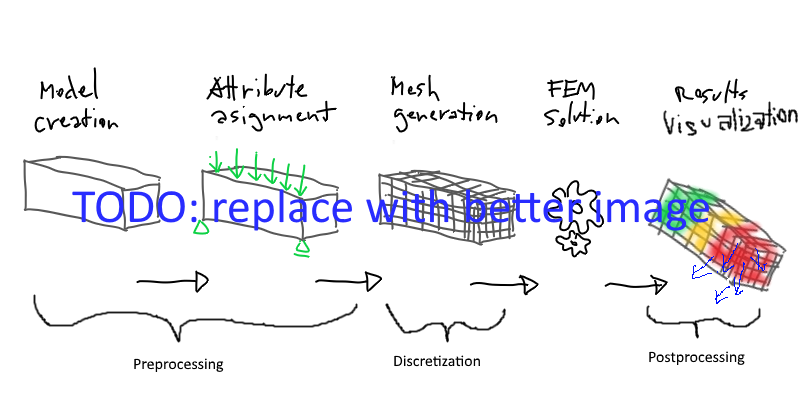 Model
creation
Attribute
asignment
Mesh
generation
FEM
solution
Results
Visualization
TODO: replace with better image
Preprocessing
Discretization
Postprocessing